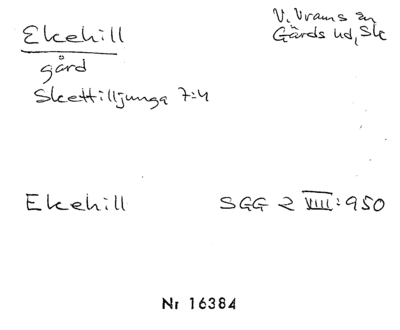 Ekehill
V. Vrams sn
Gärds hd, Sk
gård
Skettilljunga 7:4
Ekehill SGG 2 VIII:950
Nr 16384